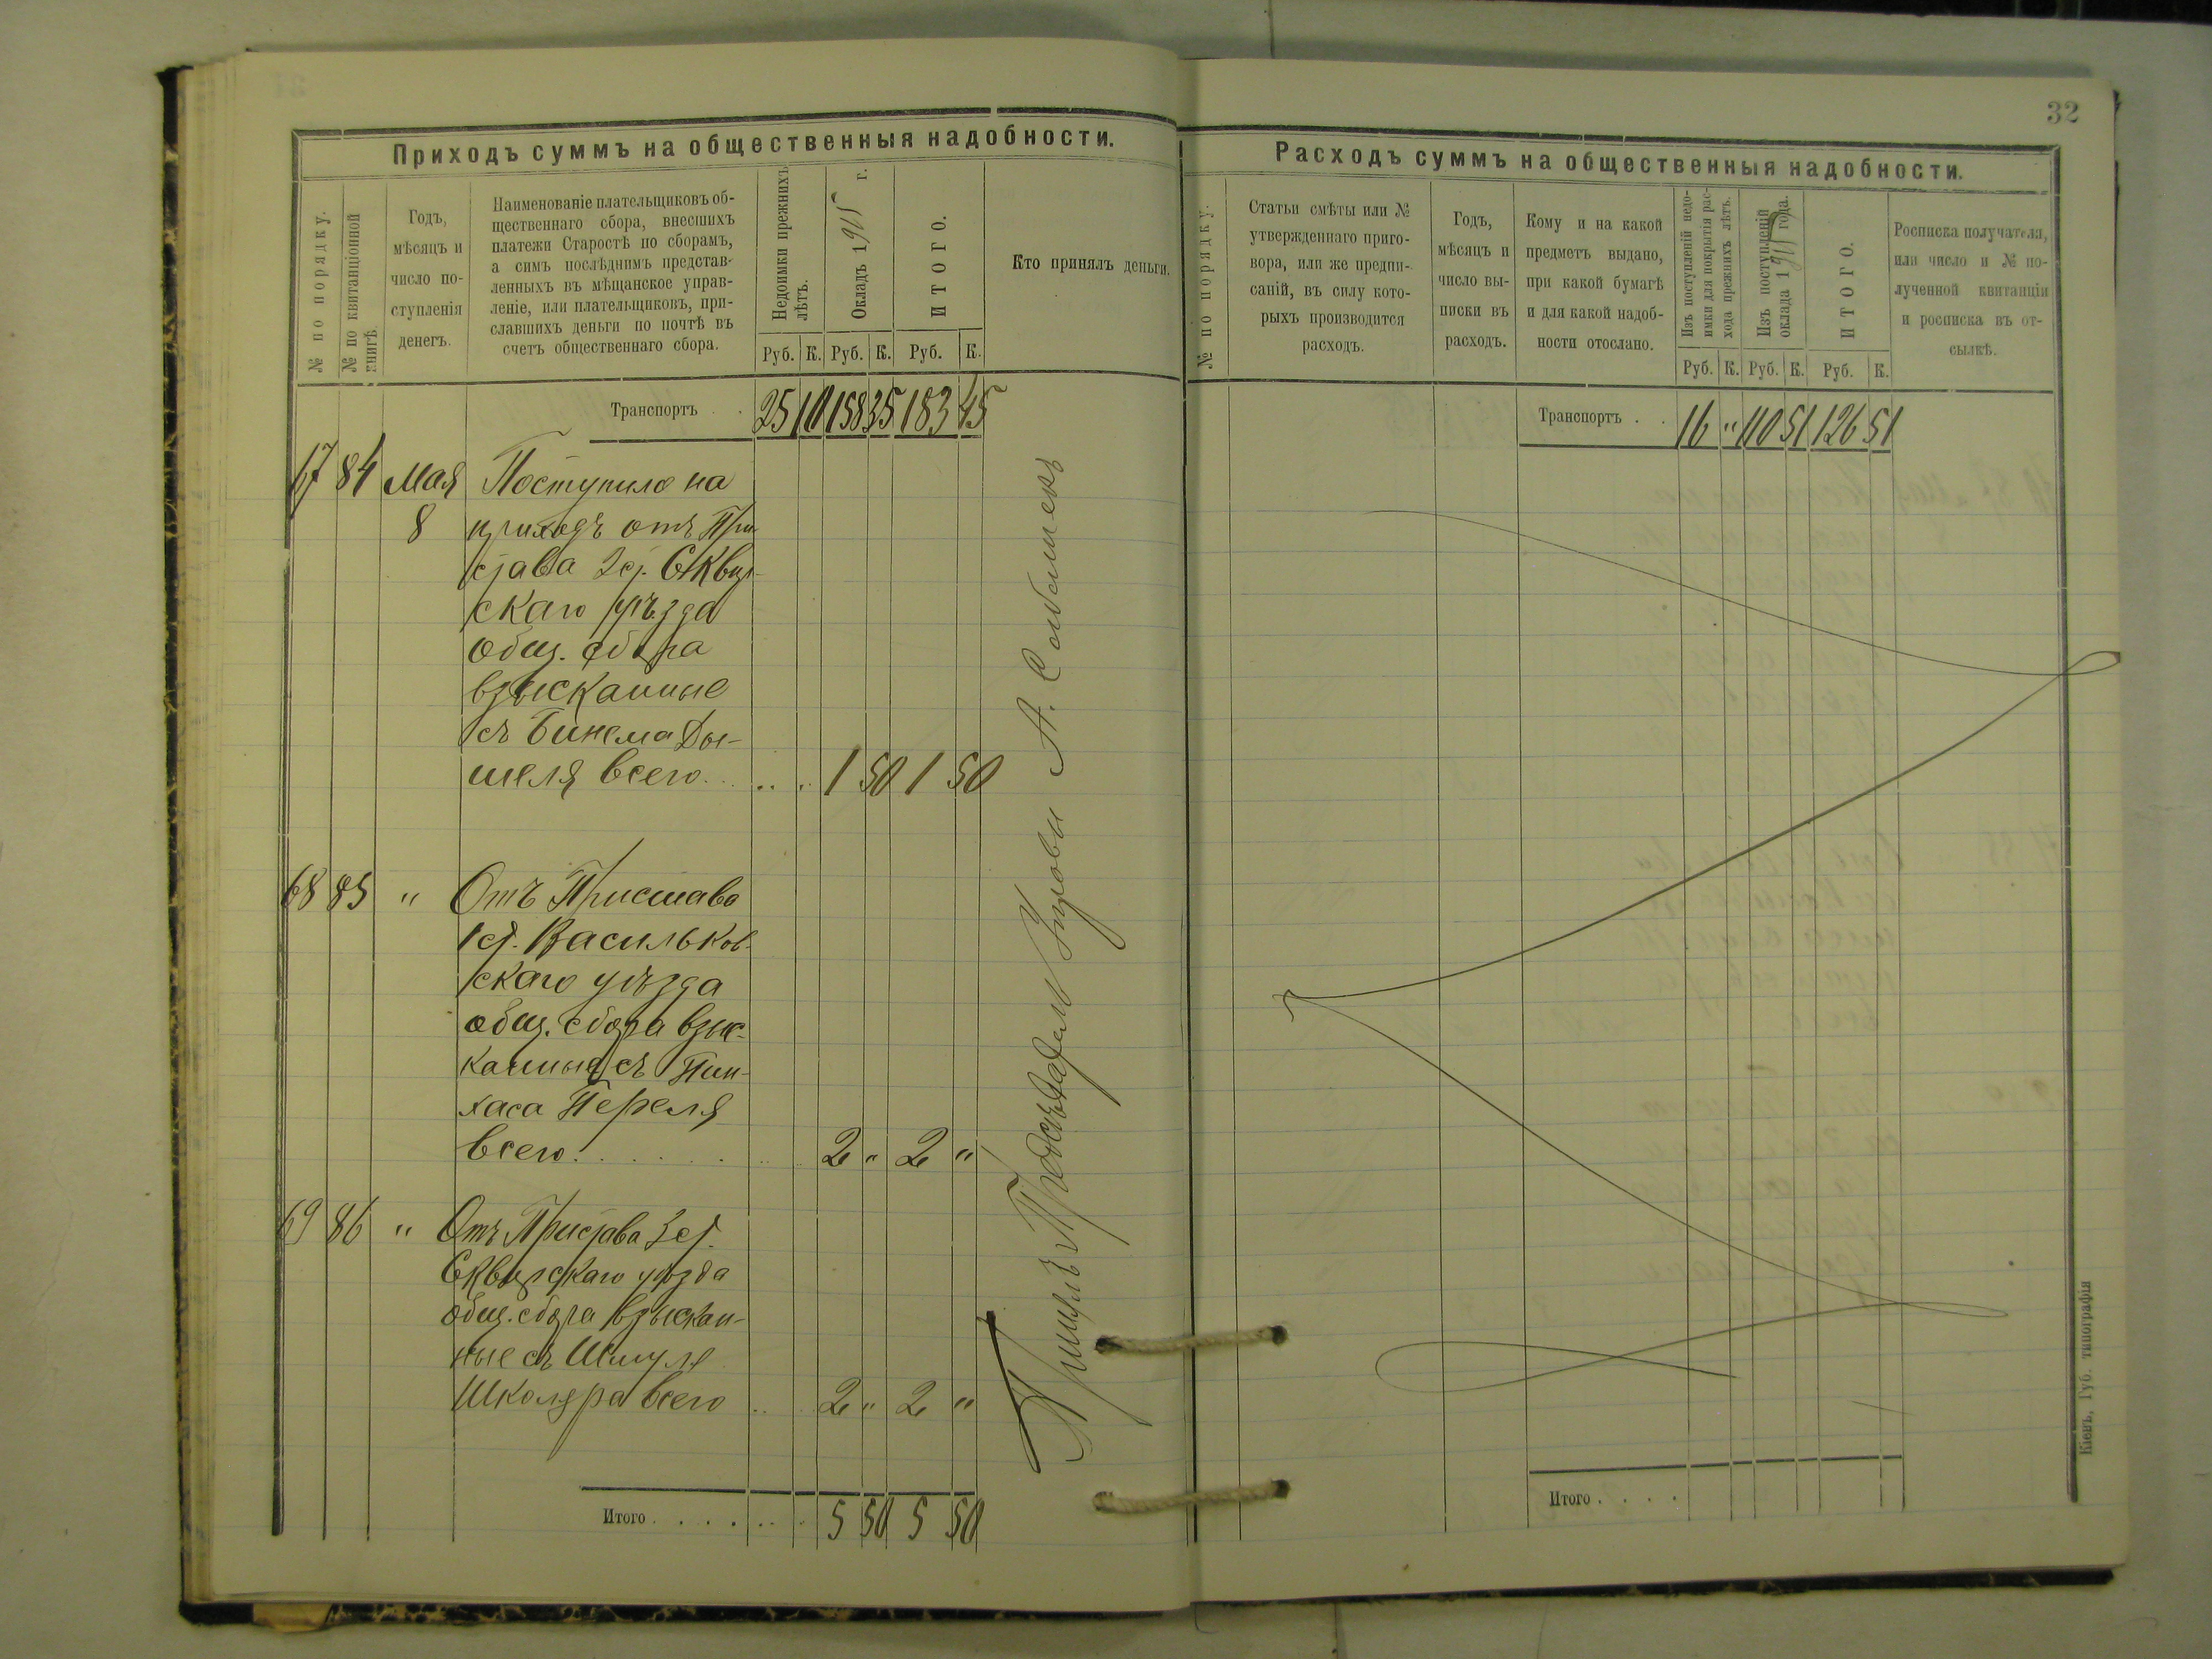 32
Приходъ суммъ на общественныя надобности.
№ по порядку.
№ по квитанціонной книгѣ.
Годъ,
мѣсяцъ и
число по-
ступленія
денегъ.
Наименованіе плательщиковъ об-
щественнаго сбора, внесшихъ
платежи Старостѣ по сборамъ,
а симъ послѣднимъ представ-
ленныхъ въ мѣщанское управ-
леніе, или плательщиковъ, при-
славшихъ деньги по почтѣ въ
счетъ общественнаго сбора.
Недоимки прежнихъ
лѣтъ.
Окладъ 1915 г.
ИТОГО.
Руб. К. Руб. К. Руб. К.
Кто принялъ деньги.
Транспортъ . . 25 10 158 35 183 45
67 84 Мая Поступило на
8 приходъ отъ При
става 2 ст. Сквир-
скаго уѣзда
общ. сбора
взысканные
съ Бинема Ды-
шеля всего . . . 1 50 1 50
68 85 " Отъ Пристава
1 ст. Васильков-
скаго уѣзда
общ. сбора взыс-
канные съ Пин-
хаса Переля
всего . . . . 2 " 2 "
69 86 " Отъ Пристава 3 ст.
Сквирскаго уѣзда
общ. сбора взыскан-
ные съ Шмуля
Школяра всего . . 2 " 2 "
Итого . . . . . . . 5 50 5 50
Принялъ Предсѣдатель Управы А.
Расходъ суммъ на общественныя надобности.
№ по порядку.
Статьи смѣты или №
утвержденнаго приго-
вора, или же предпи-
саній, въ силу кото-
рыхъ производится
расходъ.
Годъ,
мѣсяцъ и
число вы-
писки въ
расходъ.
Кому и на какой
предметъ выдано,
при какой бумагѣ
и для какой надоб-
ности отослано.
Изъ поступленій недо-
имки для покрытія рас-
хода прежнихъ лѣтъ.
Изъ поступленій
оклада 1915 года.
ИТОГО.
Руб. К. Руб. К. Руб. К.
Росписка получателя,
или число и № по-
лученной квитанціи
и росписка въ от-
сылкѣ.
Транспортъ . . 16 " 110 51 126 51
Итого . . . .
Кіевъ, Губ. типографія